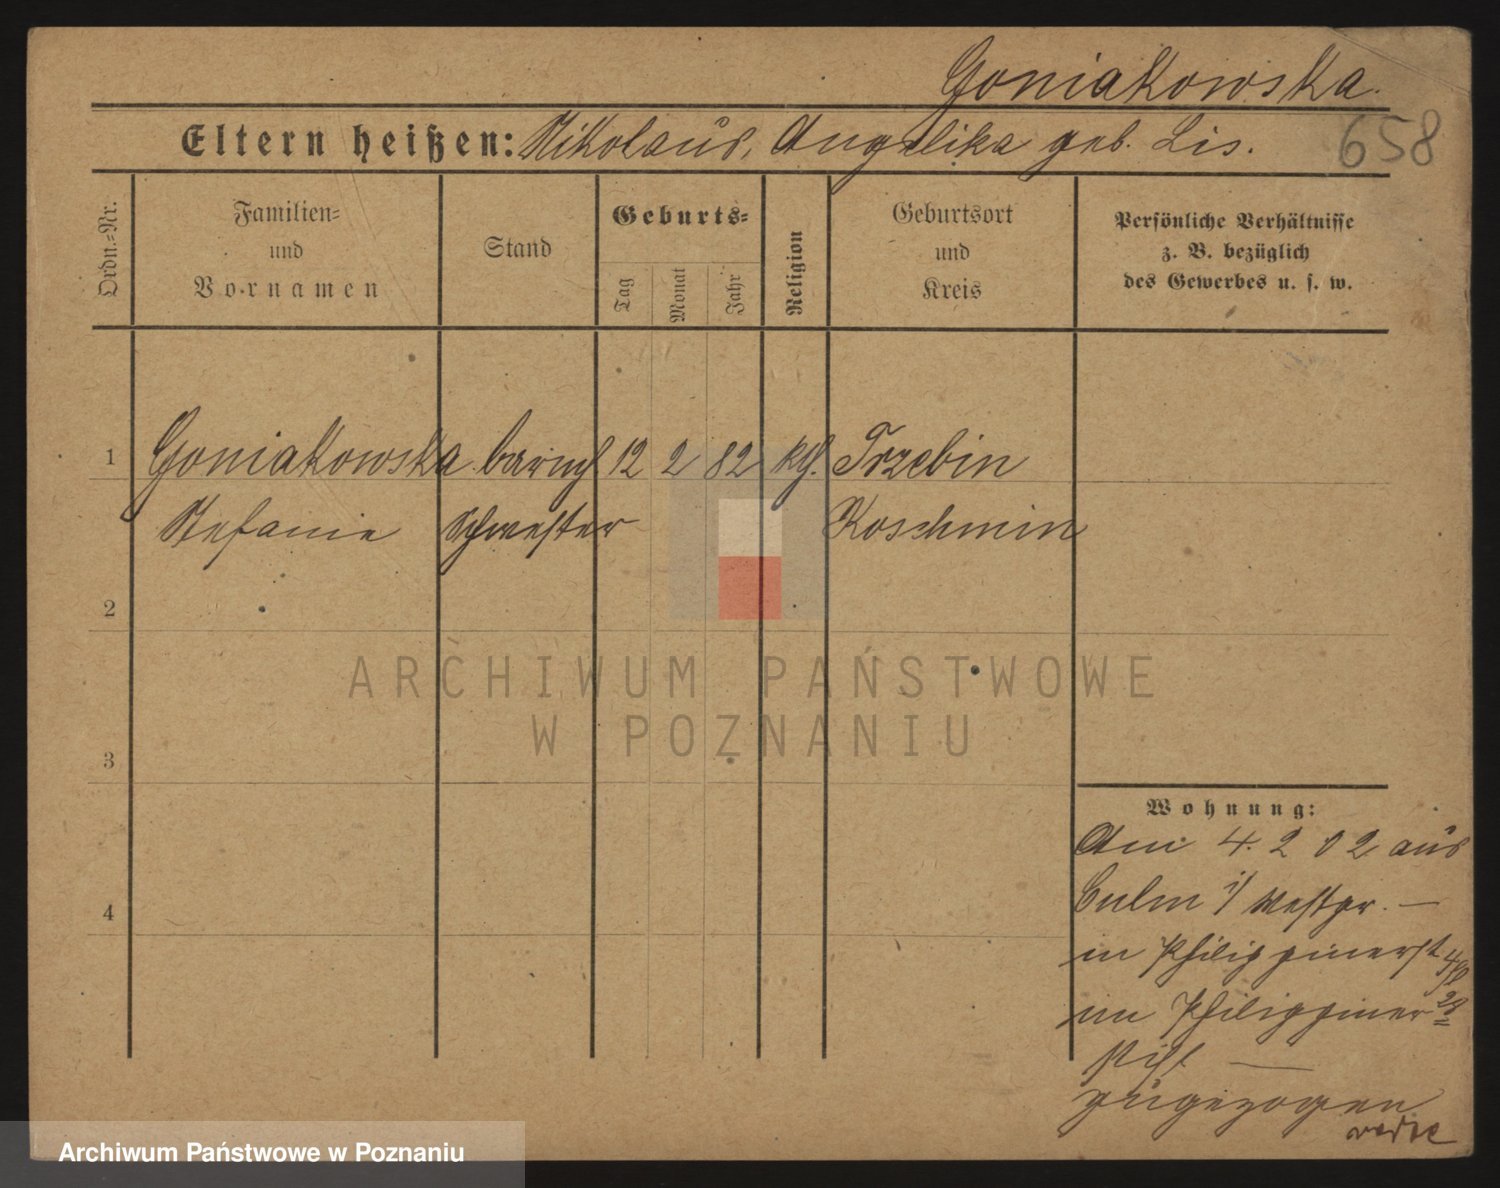 Goniakowska.
Eltern heißen: Nikolaus, Angelika geb. Lis.
658
Ordn.=Nr.
Familien=
und
Vornamen
Stand
Geburts=
Tag
Monat
Jahr
Religion
Geburtsort
und
Kreis
Persönliche Verhältnisse
z. B. bezüglich
des Gewerbes u. s. w.
1 Goniakowska barmh 12 2 82 kth. Trzebin
Stefanie Schwester Koschmin
2
ARCHIWUM PAŃSTWOWE
W POZNANIU
3
Wohnung:
Am 4. 2 02 aus
4
Culm i/ Westpr. —
in Philippinerst
im Philippiner
Stift —
zugezogen
Archiwum Państwowe w Poznaniu